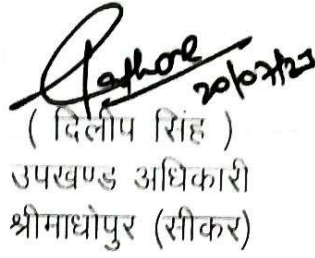 Rathore
20/07/23
( दिलीप सिंह )
उपखण्ड अधिकारी
श्रीमाधोपुर (सीकर)